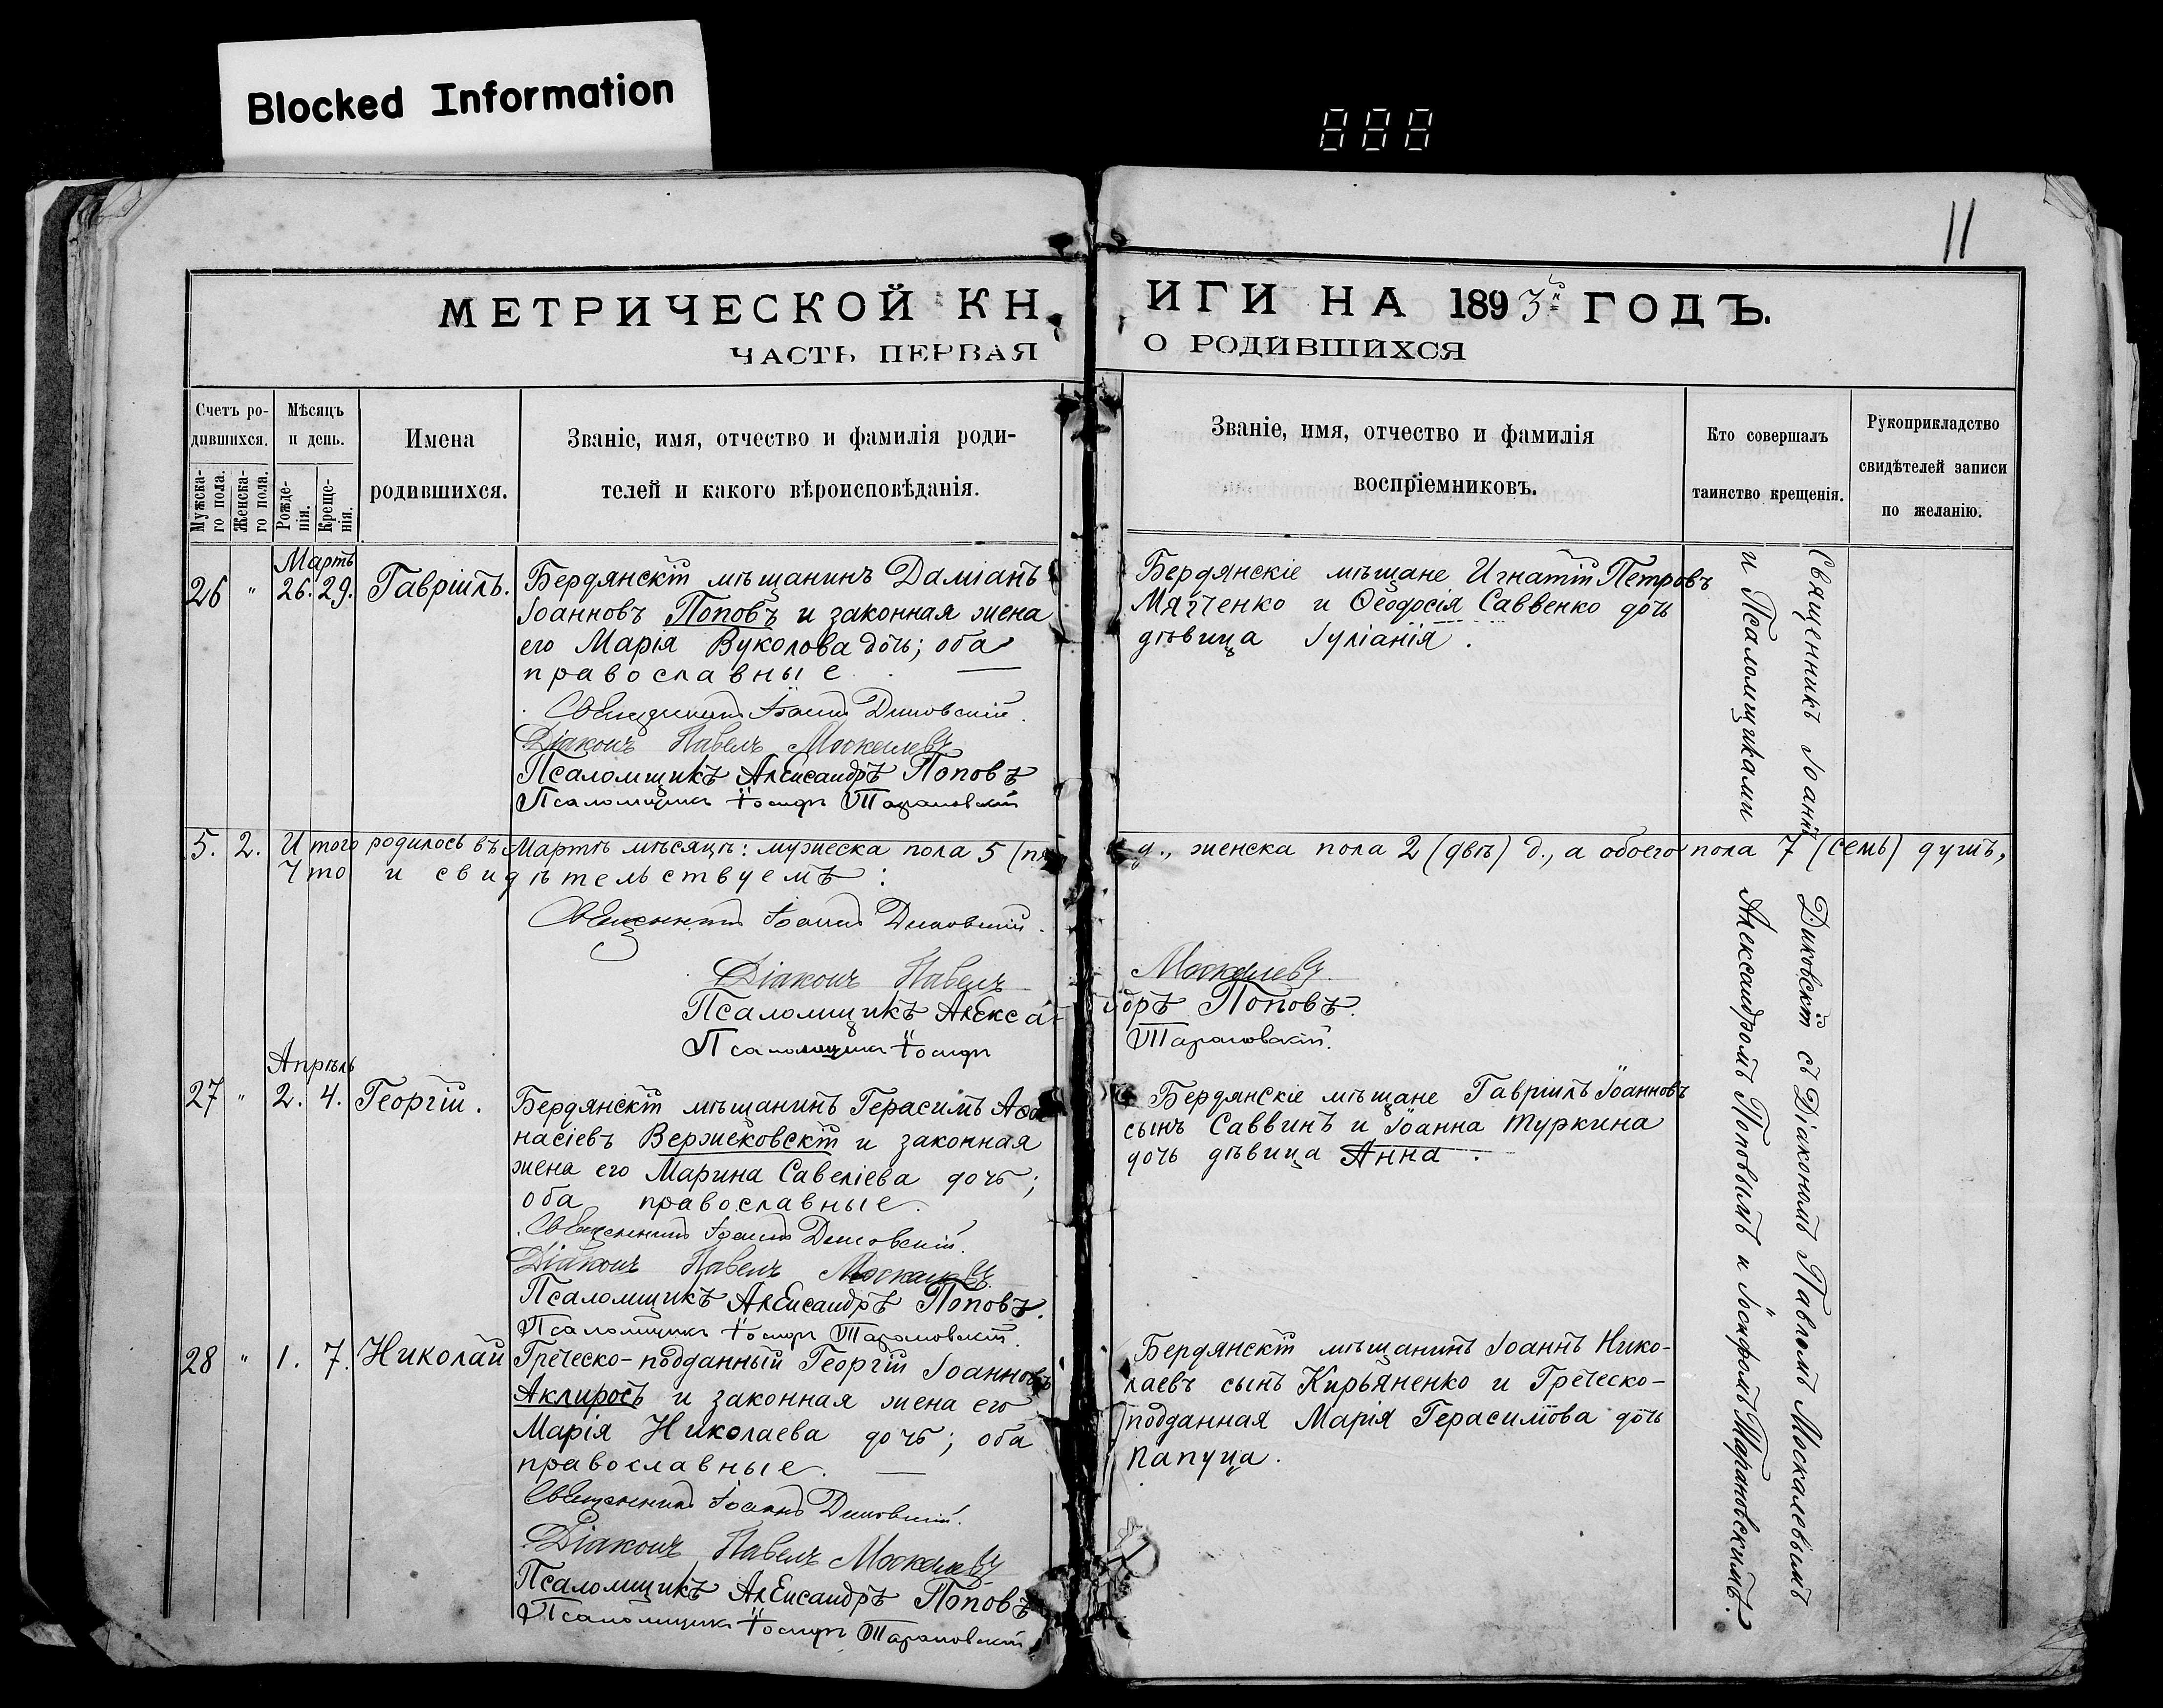 Blocked Information
888
11
МЕТРИЧЕСКОЙ КНИГИ НА 1893й ГОДЪ.
ЧАСТЬ ПЕРВАЯ О РОДИВШИХСЯ
Счетъ ро-
дившихся.
Мужска-
го пола.
Женска-
го пола.
Мѣсяцъ
и день.
Рожде-
нія.
Креще-
нія.
Имена
родившихся.
Званіе, имя, отчество и фамилія роди-
телей и какого вѣроисповѣданія.
Званіе, имя, отчество и фамилія
воспріемниковъ.
Кто совершалъ
таинство крещенія.
Рукоприкладство
свидѣтелей записи
по желанію.
Мартъ
26 " 26. 29. Гавріилъ.
Бердянскій мѣщанинъ Даміанъ
Іоанновъ Поповъ и законная жена
его Марія Вуколова дочь; оба
православные
Священникъ Іоаннъ Диковскій.
Діаконъ Павелъ Москалевъ
Псаломщикъ Александръ Поповъ
Псаломщикъ Іосифъ Тарановскій
Бердянскіе мѣщане Игнатій Петровъ
Мягченко и Ѳеодосія Саввенко дочь
дѣвица Іуліанія.
5. 2. Итого родилось въ Мартѣ мѣсяцѣ: мужеска пола 5 (пя д., женска пола 2 (двѣ) д., а обоего пола 7 (семь) душъ,
Что и свидѣтельствуемъ:
Священникъ Іоаннъ Диковскій.
Діаконъ Павелъ Москалевъ.
Псаломщикъ Александръ Поповъ.
Псаломщикъ Іосифъ Тарановскій.
Апрѣль
27 " 2. 4. Георгій.
Бердянскій мѣщанинъ Герасимъ Аѳа
насіевъ Вержековскій и законная
жена его Марина Савеліева дочь;
оба православные.
Священникъ Іоаннъ Диковскій.
Діаконъ Павелъ Москалевъ.
Псаломщикъ Александръ Поповъ.
Псаломщикъ Іосифъ Тарановскій.
Бердянскіе мѣщане Гавріилъ Іоанновъ
сынъ Саввинъ и Іоанна Туркина
дочь дѣвица Анна.
28 " 1. 7. Николай
Греческо-подданный Георгій Іоанновъ
Аклиросъ и законная жена его
Марія Николаева дочь; оба
православные.
Священникъ Іоаннъ Диковскій.
Діаконъ Павелъ Москалевъ
Псаломщикъ Александръ Поповъ
Псаломщикъ Іосифъ Тарановскій
Бердянскій мѣщанинъ Іоаннъ Нико-
лаевъ сынъ Кирьяненко и Греческо-
подданная Марія Герасимова дочь
Папуца.
Священникъ Іоаннъ Диковскій съ Діакономъ Павломъ Москалевымъ
и Псаломщиками Александромъ Поповымъ и Іосифомъ Тарановскимъ.